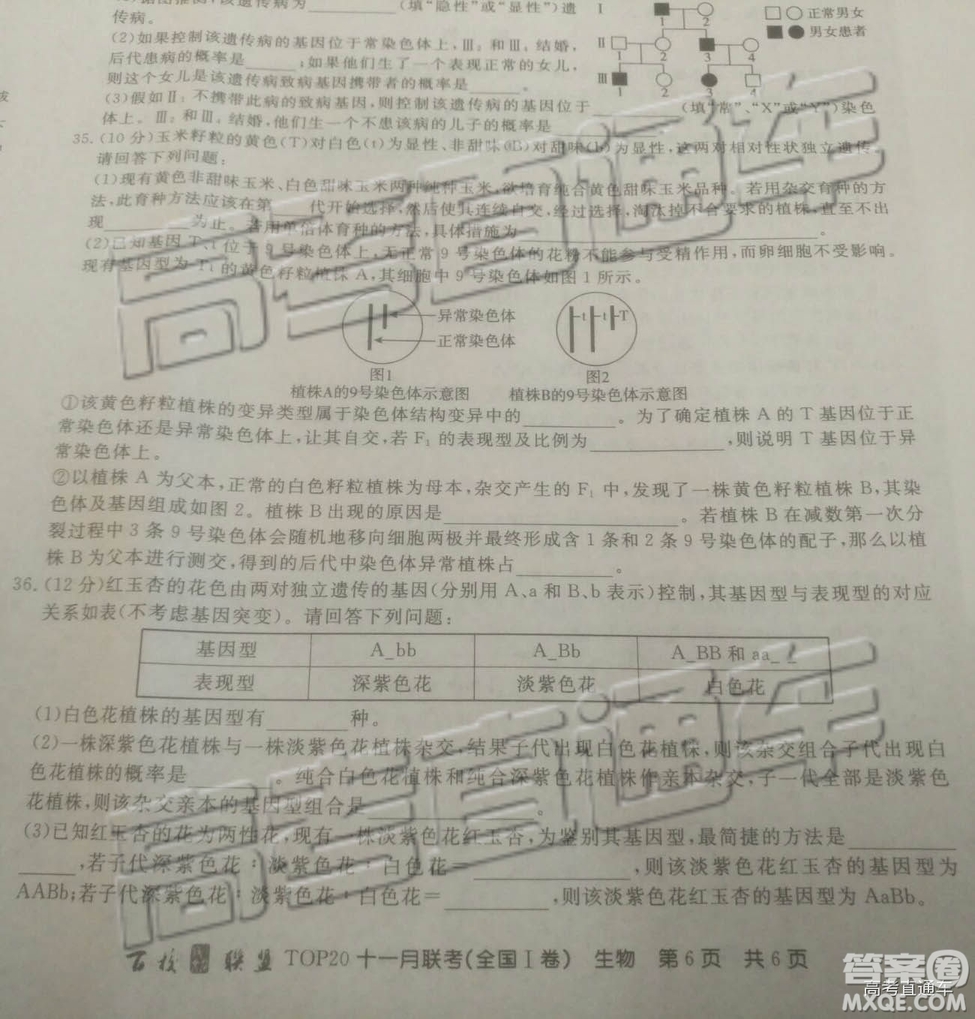 传病。
(填“隐性”或“显性”)遗
(2)如果控制该遗传病的基因位于常染色体上,Ⅲ₂和Ⅲ₄结婚,
后代患病的概率是______;如果他们生了一个表现正常的女儿,
则这个女儿是该遗传病致病基因携带者的概率是______。
(3)假如Ⅱ₁不携带此病的致病基因,则控制该遗传病的基因位于______(填“常”、“X”或“Y”)染色
体上。Ⅲ₂和Ⅲ₄结婚,他们生一个不患该病的儿子的概率是______
Ⅰ
1
2
Ⅱ
1
2
3
4
Ⅲ
1
2
3
4
正常男女
男女患者
35.(10分)玉米籽粒的黄色(T)对白色(t)为显性、非甜味(B)对甜味(b)为显性,这两对相对性状独立遗传。
请回答下列问题:
(1)现有黄色非甜味玉米、白色甜味玉米两种纯种玉米,欲培育纯合黄色甜味玉米品种。若用杂交育种的方
法,此育种方法应该在第____代开始选择,然后使其连续自交,经过选择,淘汰掉不合要求的植株,直至不出
现________为止。若用单倍体育种的方法,具体措施为________________。
(2)已知基因T、t位于9号染色体上,无正常9号染色体的花粉不能参与受精作用,而卵细胞不受影响。
现有基因型为Tt的黄色籽粒植株A,其细胞中9号染色体如图1所示。
异常染色体
正常染色体
t
t
T
图1
图2
植株A的9号染色体示意图
植株B的9号染色体示意图
①该黄色籽粒植株的变异类型属于染色体结构变异中的________。为了确定植株A的T基因位于正
常染色体还是异常染色体上,让其自交,若F₁的表现型及比例为____________,则说明T基因位于异
常染色体上。
②以植株A为父本,正常的白色籽粒植株为母本,杂交产生的F₁中,发现了一株黄色籽粒植株B,其染
色体及基因组成如图2。植株B出现的原因是____________________。若植株B在减数第一次分
裂过程中3条9号染色体会随机地移向细胞两极并最终形成含1条和2条9号染色体的配子,那么以植
株B为父本进行测交,得到的后代中染色体异常植株占________。
36.(12分)红玉杏的花色由两对独立遗传的基因(分别用A、a和B、b表示)控制,其基因型与表现型的对应
关系如表(不考虑基因突变)。请回答下列问题:
基因型 A_bb A_Bb A_BB和aa_ _
表现型 深紫色花 淡紫色花 白色花
(1)白色花植株的基因型有______种。
(2)一株深紫色花植株与一株淡紫色花植株杂交,结果子代出现白色花植株,则该杂交组合子代出现白
色花植株的概率是________。纯合白色花植株和纯合深紫色花植株作亲本杂交,子一代全部是淡紫色
花植株,则该杂交亲本的基因型组合是________________。
(3)已知红玉杏的花为两性花,现有一株淡紫色花红玉杏,为鉴别其基因型,最简捷的方法是________
____,若子代深紫色花:淡紫色花:白色花=____________,则该淡紫色花红玉杏的基因型为
AABb;若子代深紫色花:淡紫色花:白色花=________,则该淡紫色花红玉杏的基因型为AaBb。
百校联盟 TOP20十一月联考(全国Ⅰ卷) 生物 第6页 共6页
高考直通车
高考直通车
答案圈
高考直通车
MXQE.COM